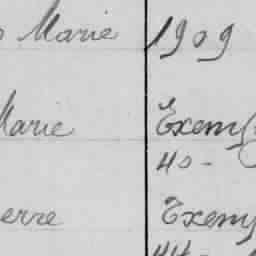 Marie 1909
Marie Exem
40 -
ierre Exem
44 -